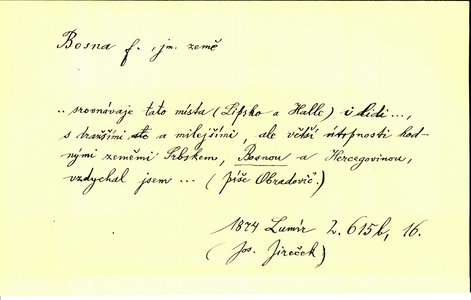 Bosna f., jm. země
.. srovnávaje tato místa (Lipsko a Halle) i lidi ...,
s dražšími a milejšími, ale větší útrpnosti hod-
nými zeměmi Srbskem, Bosnou a Hercegovinou,
vzdychal jsem ... (píše Obradovič.)
1874 Lumír 2. 615b, 16.
(Jos. Jireček)